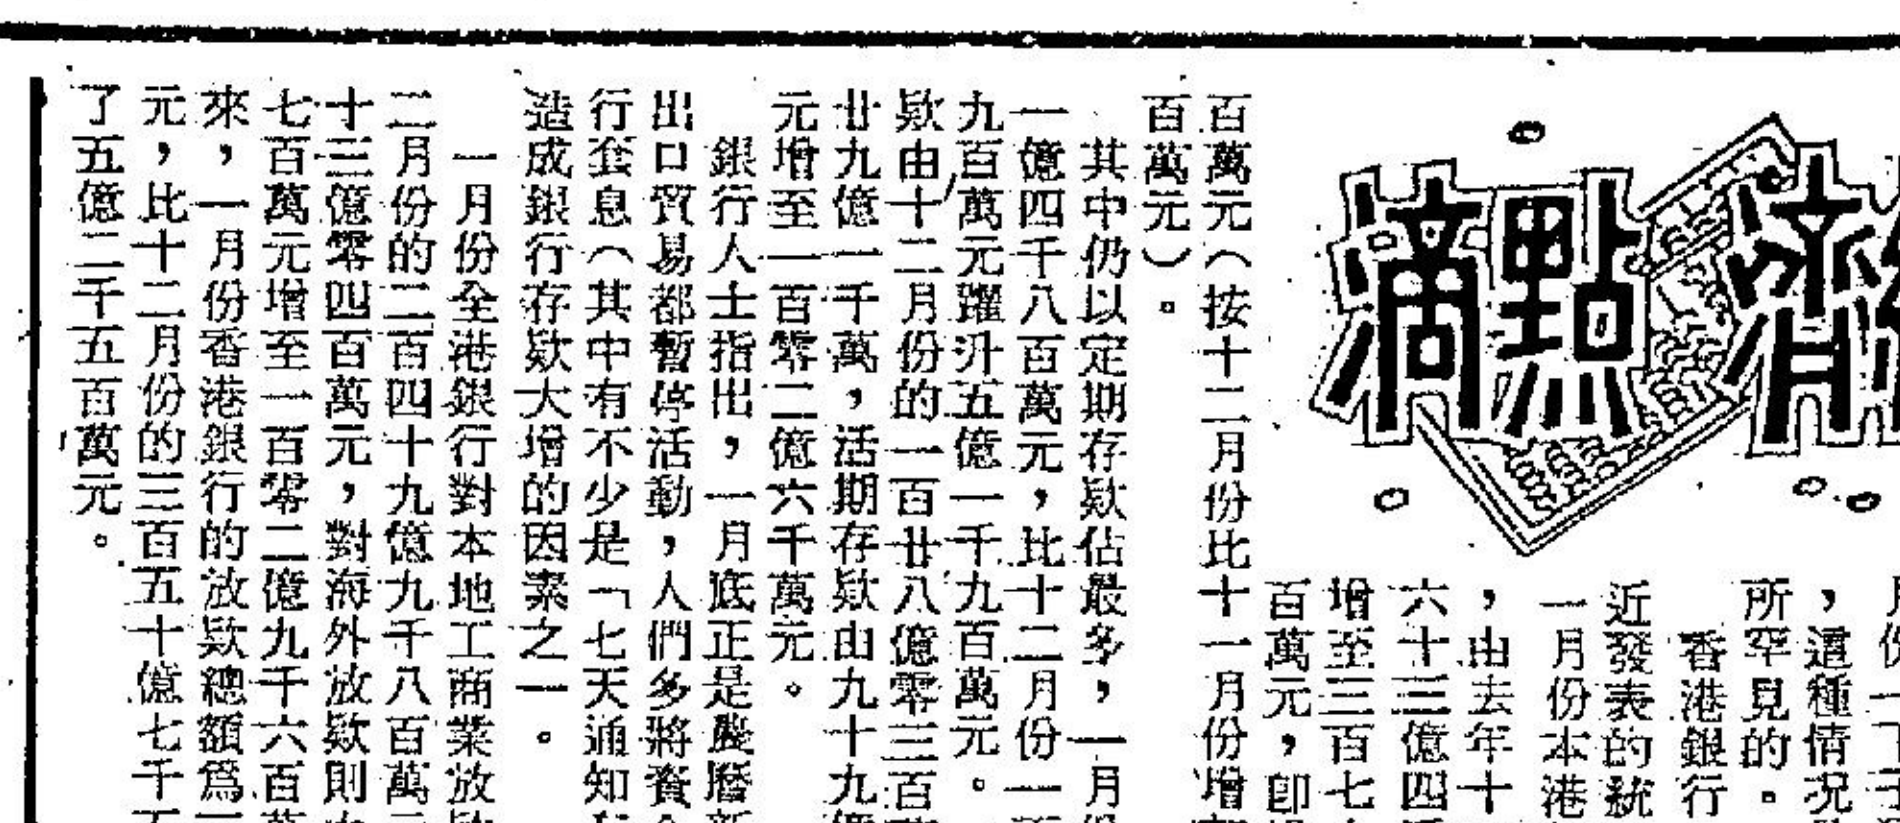 濟點滴
，這種情况
所罕見的。
香港銀行
近發表的統
一月份本港
，由去年十
六十三億四
增至三百七
百萬元，卽
百萬元（按十二月份比十一月份增
百萬元）。
其中仍以定期存欵佔最多，一月
一億四千八百萬元，比十二月份一
九百萬元躍升五億一千九百萬元。
欵由十二月份的一百廿八億零三百
廿九億一千萬，活期存欵由九十九
元增至一百零二億六千萬元。
銀行人士指出，一月底正是農曆新
出口貿易都暫停活動，人們多將資
行套息（其中有不少是「七天通知
造成銀行存欵大增的因素之一。
一月份全港銀行對本地工商業放
二月份的二百四十九億九千八百萬
十三億零四百萬元，對海外放欵則
七百萬元增至一百零二億九千六百
來，一月份香港銀行的放欵總額爲
元，比十二月份的三百五十億七千
了五億二千五百萬元。